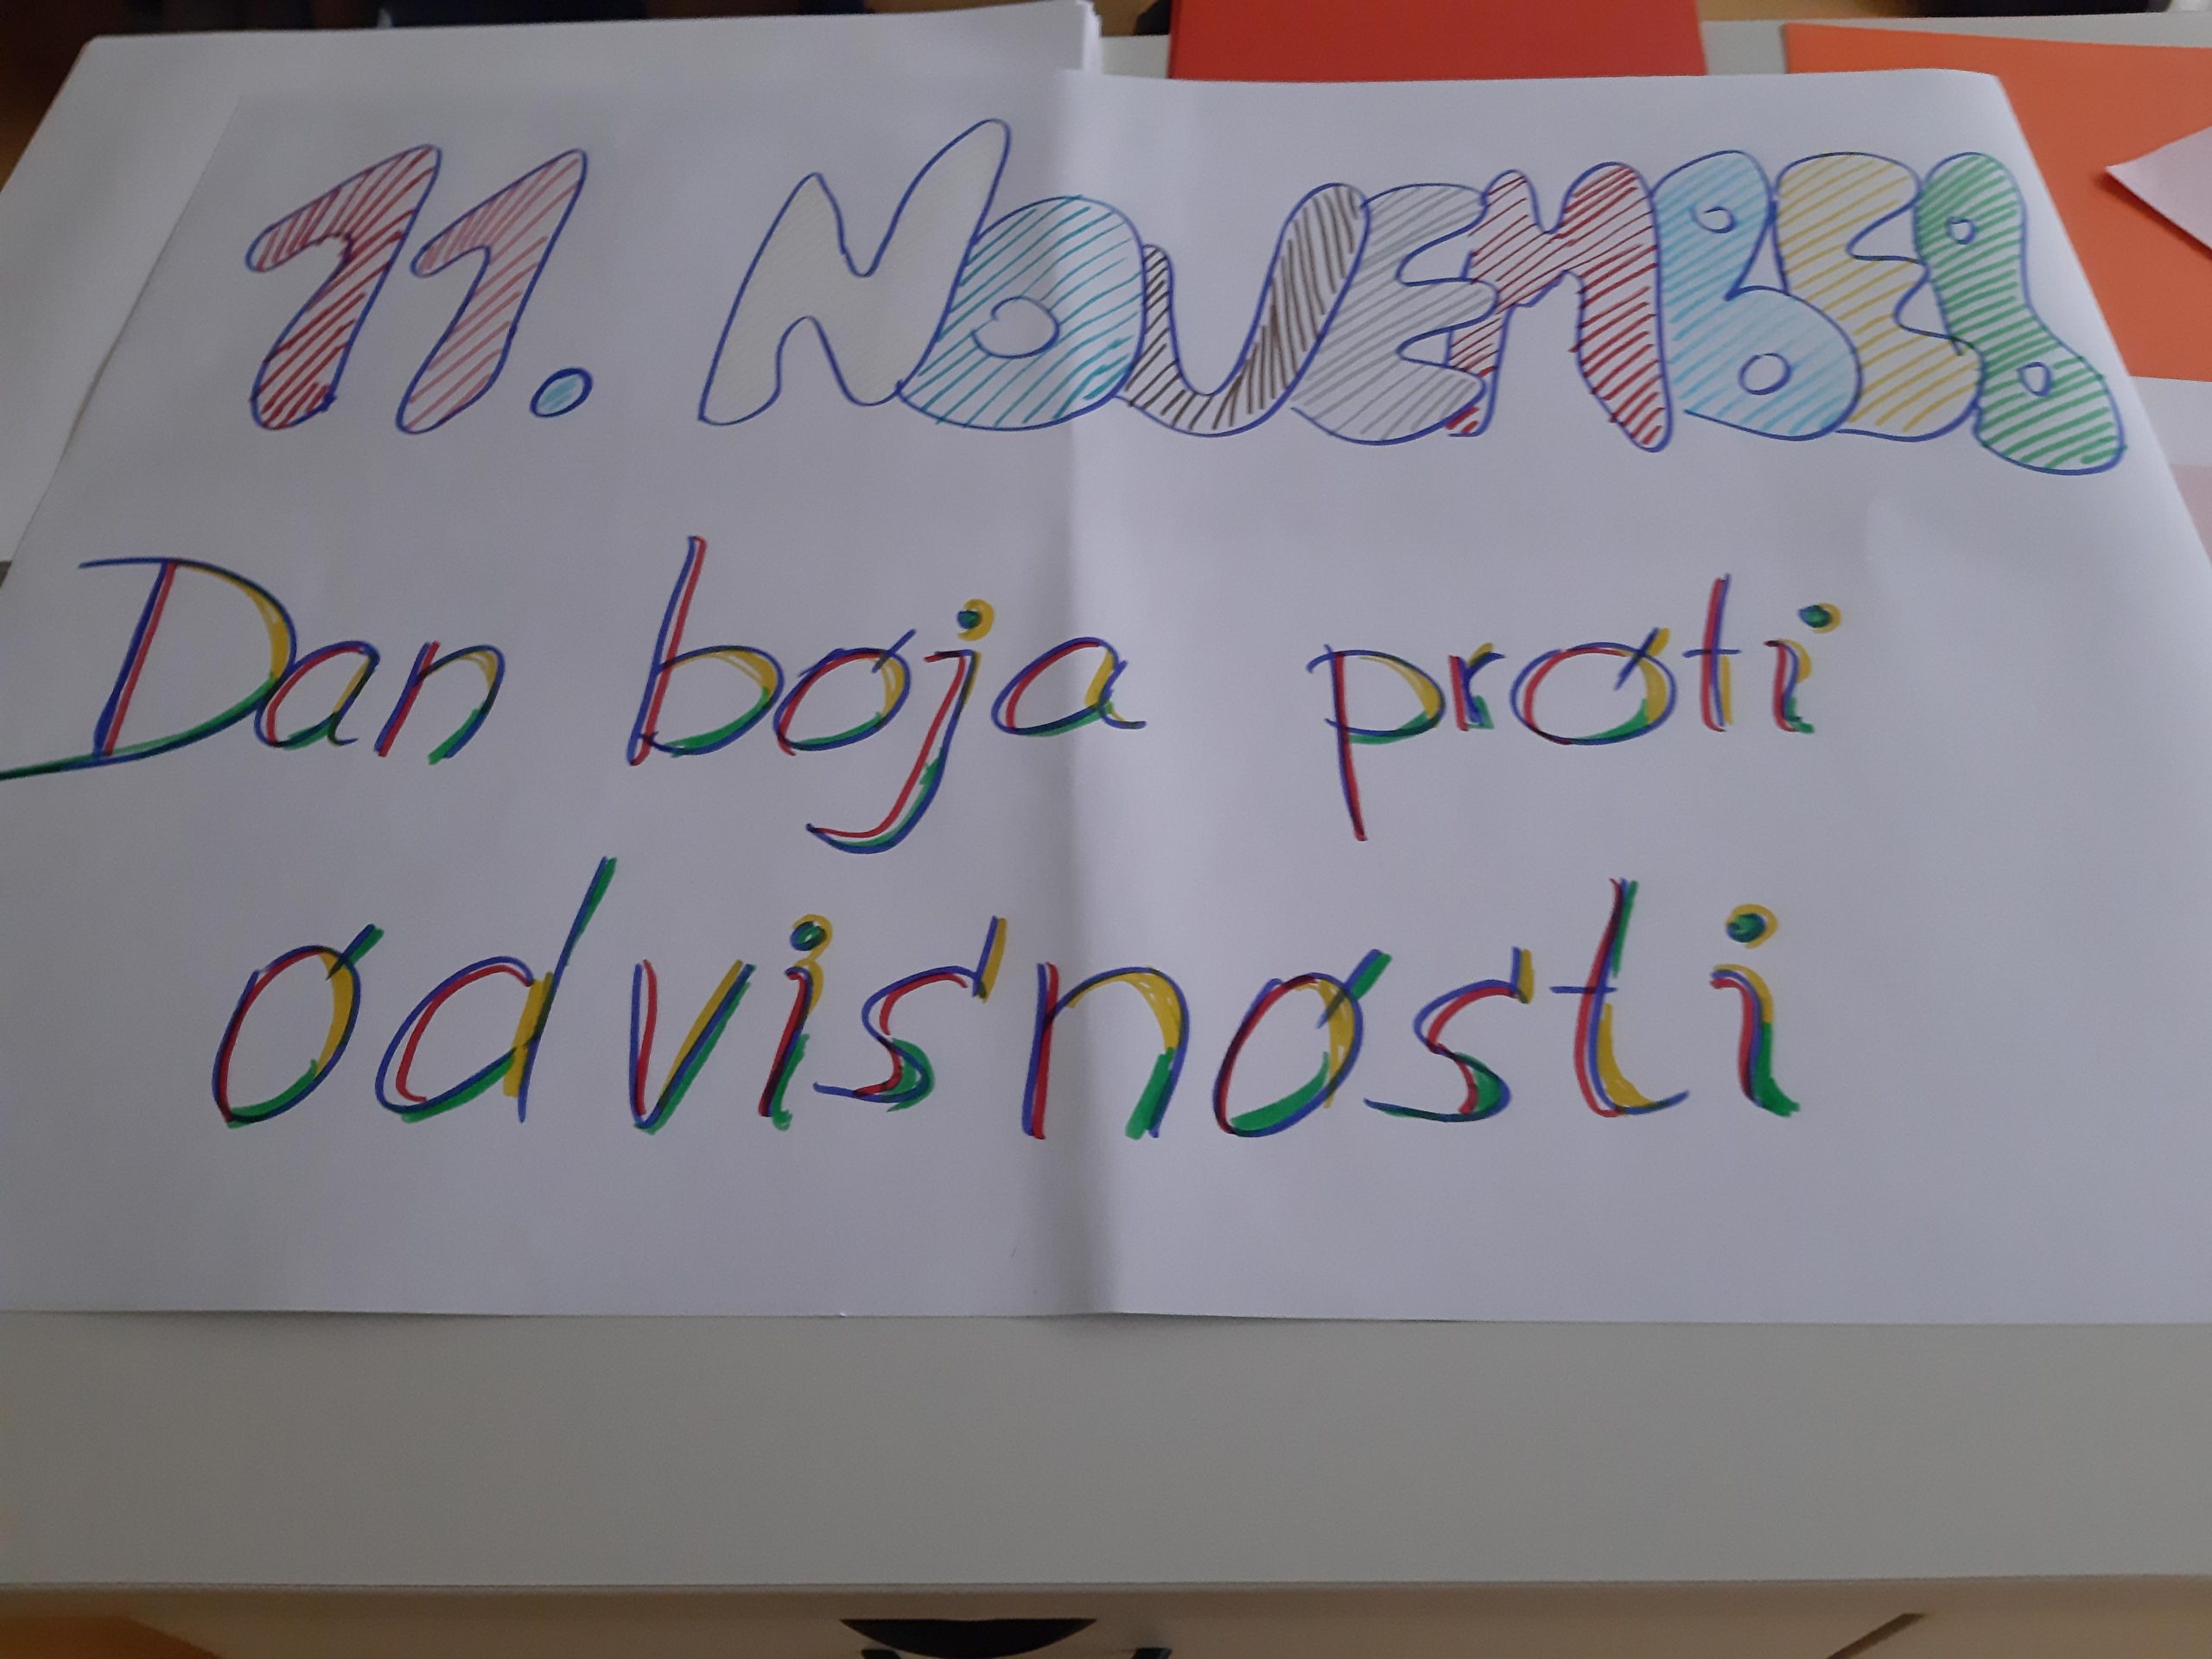 11. NOVEMBER
Dan boja proti
odvisnosti